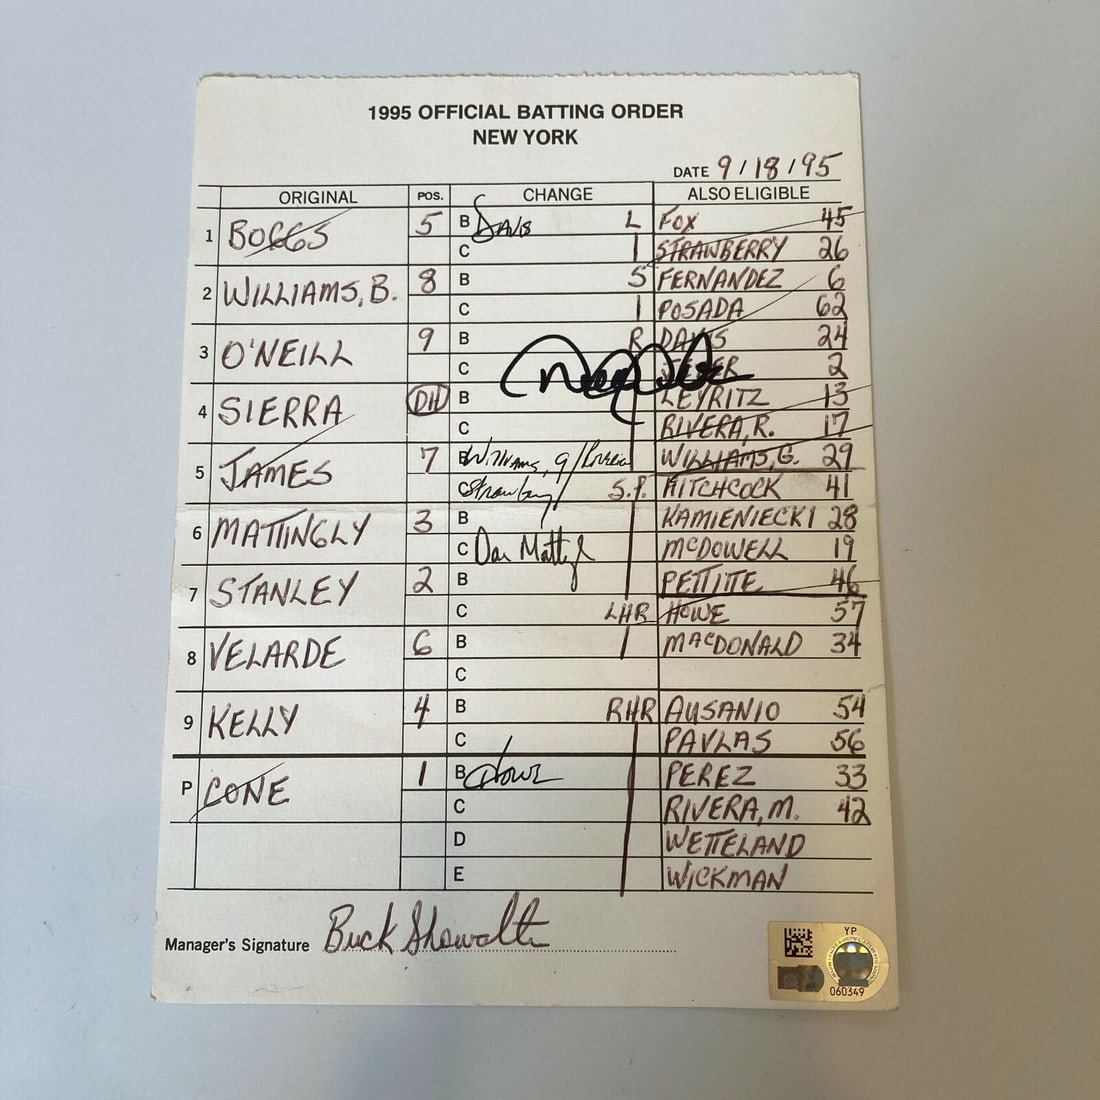 1995 OFFICIAL BATTING ORDER
NEW YORK
DATE 9/18/95
ORIGINAL POS. CHANGE ALSO ELIGIBLE
1 BOGGS 5 B DAVIS L FOX 45
C STRAWBERRY 26
2 WILLIAMS, B. 8 B S FERNANDEZ 6
C POSADA 62
3 O'NEILL 9 B R DAVIS 24
C JETER 2
4 SIERRA DH B LEYRITZ 13
C RIVERA, R. 17
5 JAMES 7 B Williams, G / Rivera WILLIAMS, G. 29
C Strawberry S.P. HITCHCOCK 41
6 MATTINGLY 3 B KAMIENIECKI 28
C Don Mattingly McDOWELL 19
7 STANLEY 2 B PETTITE 46
C LHR HOWE 57
8 VELARDE 6 B MACDONALD 34
C
9 KELLY 4 B RHR AUSANIO 54
C PAVLAS 56
P CONE 1 B Howe PEREZ 33
C RIVERA, M. 42
D WETTELAND
E WICKMAN
Manager's Signature Buck Showalter
YP
060349